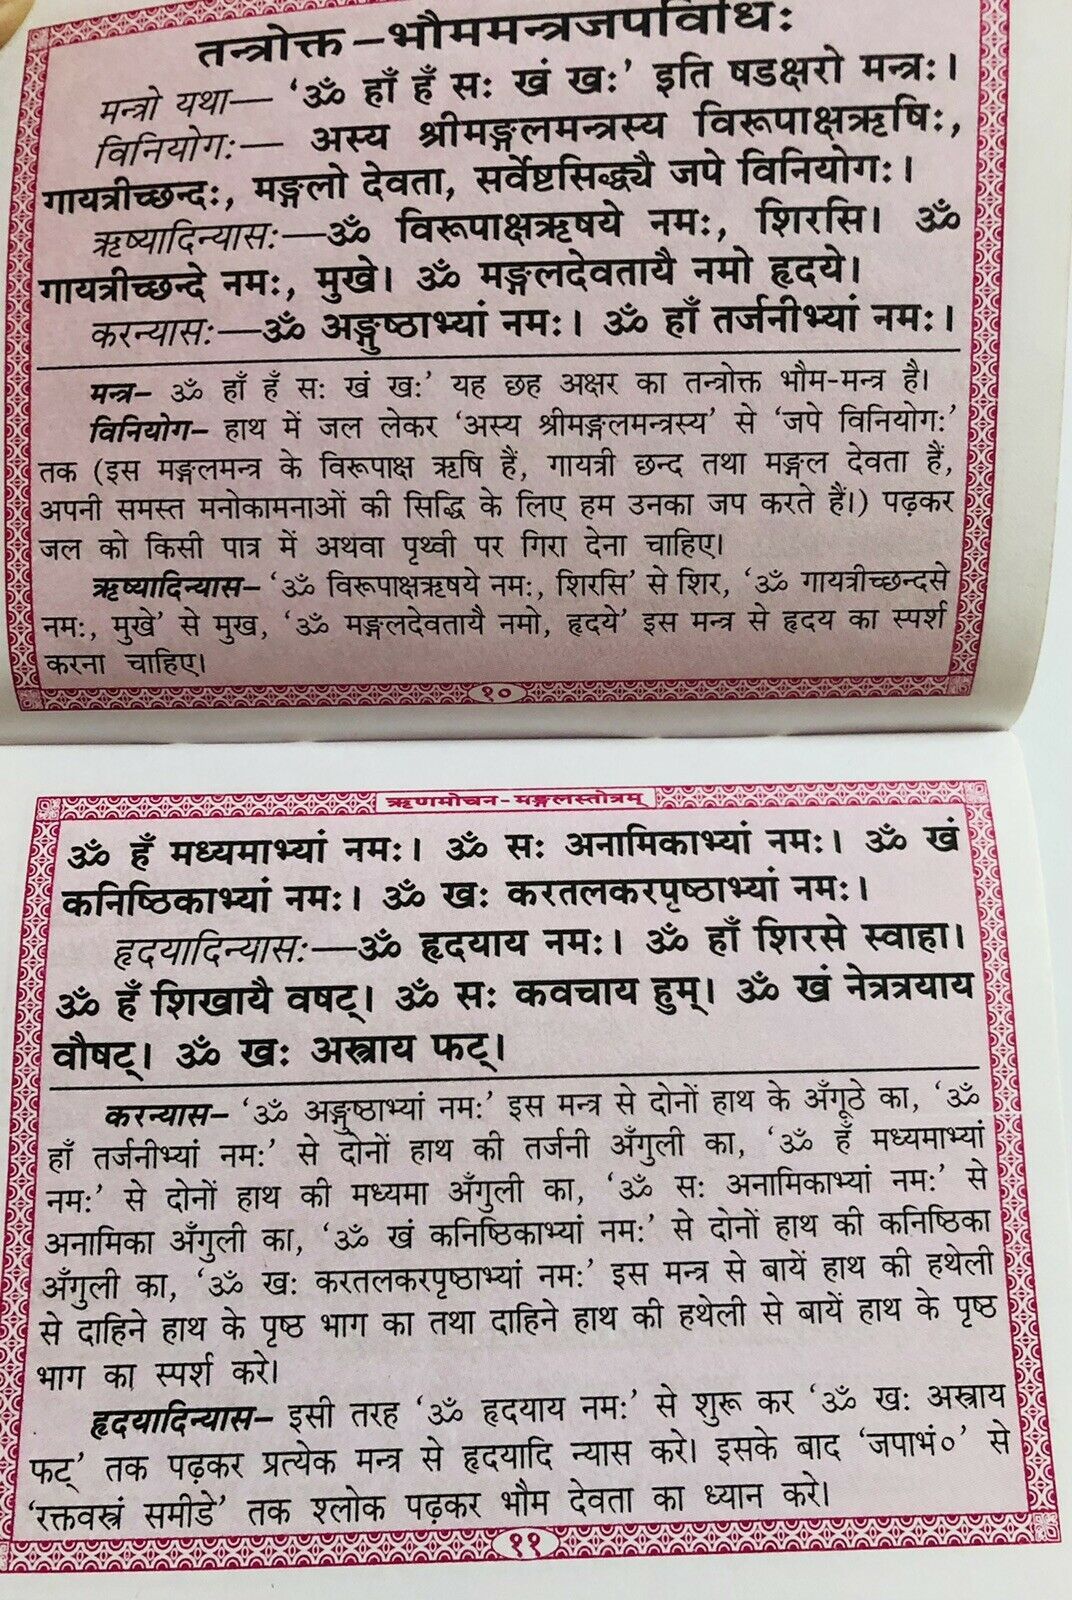 तन्त्रोक्त –भौममन्त्रजपविधिः
मन्त्रो यथा— ‘ॐ हाँ हँ सः खं खः’ इति षडक्षरो मन्त्रः।
विनियोगः— अस्य श्रीमङ्गलमन्त्रस्य विरूपाक्षऋषिः,
गायत्रीच्छन्दः, मङ्गलो देवता, सर्वेष्टसिद्ध्यै जपे विनियोगः।
ऋष्यादिन्यासः—ॐ विरूपाक्षऋषये नमः, शिरसि। ॐ
गायत्रीच्छन्दे नमः, मुखे। ॐ मङ्गलदेवतायै नमो हृदये।
करन्यासः—ॐ अङ्गुष्ठाभ्यां नमः। ॐ हाँ तर्जनीभ्यां नमः।
मन्त्र– ॐ हाँ हँ सः खं खः’ यह छह अक्षर का तन्त्रोक्त भौम-मन्त्र है।
विनियोग– हाथ में जल लेकर ‘अस्य श्रीमङ्गलमन्त्रस्य’ से ‘जपे विनियोगः’
तक (इस मङ्गलमन्त्र के विरूपाक्ष ऋषि हैं, गायत्री छन्द तथा मङ्गल देवता हैं,
अपनी समस्त मनोकामनाओं की सिद्धि के लिए हम उनका जप करते हैं।) पढ़कर
जल को किसी पात्र में अथवा पृथ्वी पर गिरा देना चाहिए।
ऋष्यादिन्यास– ‘ॐ विरूपाक्षऋषये नमः, शिरसि’ से शिर, ‘ॐ गायत्रीच्छन्दसे
नमः, मुखे’ से मुख, ‘ॐ मङ्गलदेवतायै नमो, हृदये’ इस मन्त्र से हृदय का स्पर्श
करना चाहिए।
१०
ऋणमोचन-मङ्गलस्तोत्रम्
ॐ हँ मध्यमाभ्यां नमः। ॐ सः अनामिकाभ्यां नमः। ॐ खं
कनिष्ठिकाभ्यां नमः। ॐ खः करतलकरपृष्ठाभ्यां नमः।
हृदयादिन्यासः—ॐ हृदयाय नमः। ॐ हाँ शिरसे स्वाहा।
ॐ हँ शिखायै वषट्। ॐ सः कवचाय हुम्। ॐ खं नेत्रत्रयाय
वौषट्। ॐ खः अस्त्राय फट्।
करन्यास– ‘ॐ अङ्गुष्ठाभ्यां नमः’ इस मन्त्र से दोनों हाथ के अँगूठे का, ‘ॐ
हाँ तर्जनीभ्यां नमः’ से दोनों हाथ की तर्जनी अँगुली का, ‘ॐ हँ मध्यमाभ्यां
नमः’ से दोनों हाथ की मध्यमा अँगुली का, ‘ॐ सः अनामिकाभ्यां नमः’ से
अनामिका अँगुली का, ‘ॐ खं कनिष्ठिकाभ्यां नमः’ से दोनों हाथ की कनिष्ठिका
अँगुली का, ‘ॐ खः करतलकरपृष्ठाभ्यां नमः’ इस मन्त्र से बायें हाथ की हथेली
से दाहिने हाथ के पृष्ठ भाग का तथा दाहिने हाथ की हथेली से बायें हाथ के पृष्ठ
भाग का स्पर्श करे।
हृदयादिन्यास– इसी तरह ‘ॐ हृदयाय नमः’ से शुरू कर ‘ॐ खः अस्त्राय
फट्’ तक पढ़कर प्रत्येक मन्त्र से हृदयादि न्यास करे। इसके बाद ‘जपाभं०’ से
‘रक्तवस्त्रं समीडे’ तक श्लोक पढ़कर भौम देवता का ध्यान करे।
११